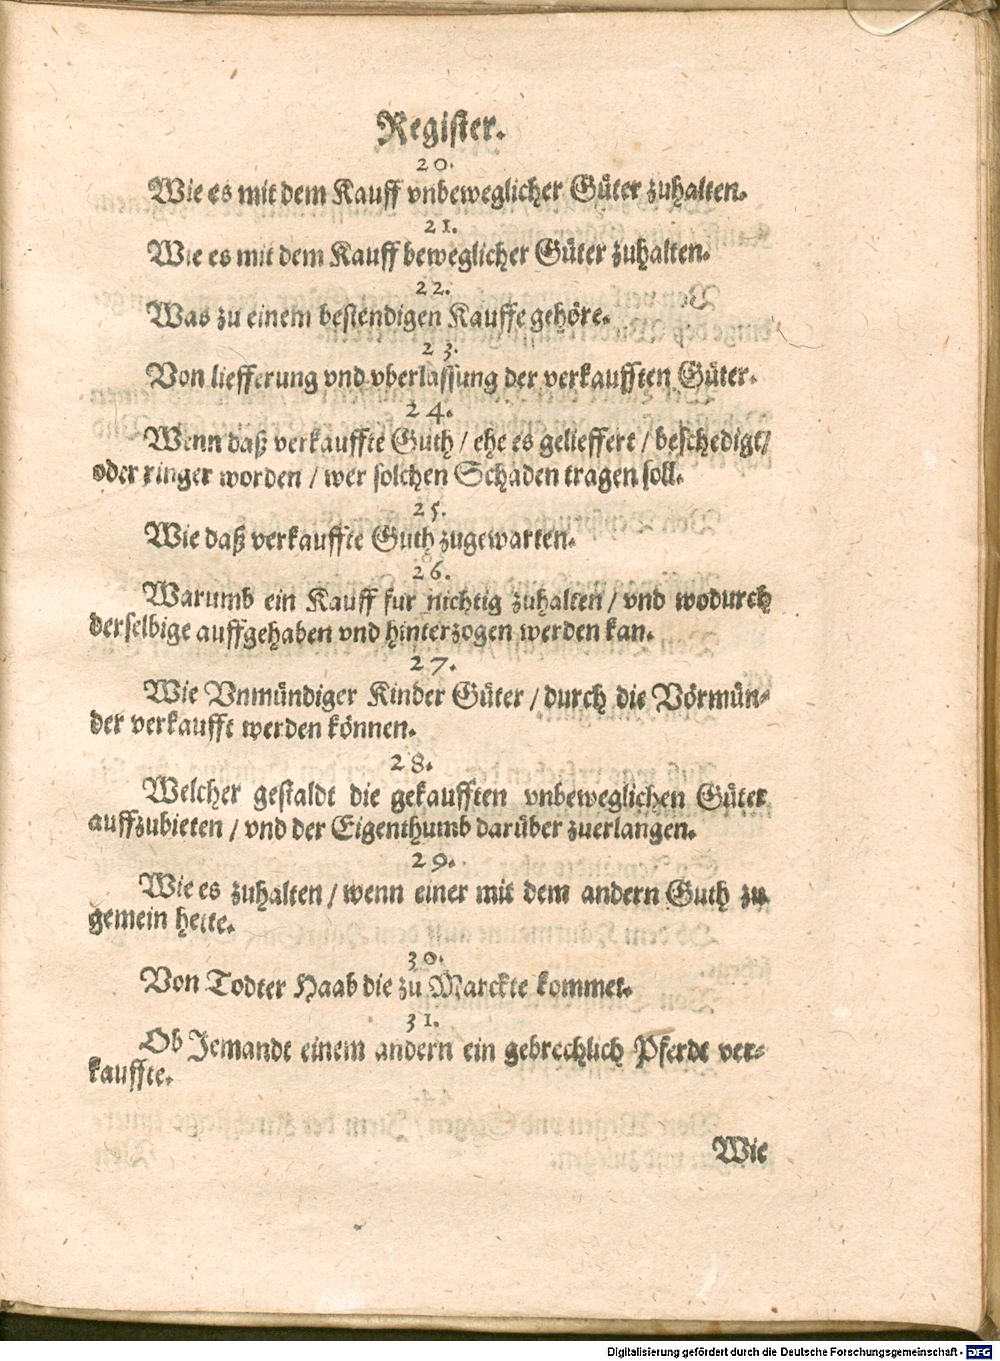 Register.
20.
Wie es mit dem Kauff vnbeweglicher Güter zuhalten.
21.
Wie es mit dem Kauff beweglicher Güter zuhalten.
22.
Was zu einem bestendigen Kauffe gehöre.
23.
Von liefferung vnd vberlassung der verkaufften Güter.
24.
Wenn daß verkauffte Guth / ehe es gelieffert / beschedigt/
oder ringer worden / wer solchen Schaden tragen soll.
25.
Wie daß verkauffte Guth zugewarten.
26.
Warumb ein Kauff fur nichtig zuhalten / vnd wodurch
derselbige auffgehaben vnd hinterzogen werden kan.
27.
Wie Vnmündiger Kinder Güter / durch die Vörmün-
der verkaufft werden können.
28.
Welcher gestaldt die gekaufften vnbeweglichen Güter
auffzubieten / vnd der Eigenthumb darüber zuerlangen.
29.
Wie es zuhalten / wenn einer mit dem andern Guth zu
gemein hette.
30.
Von Todter Haab die zu Marckte kommet.
31.
Ob Jemandt einem andern ein gebrechlich Pferdt ver-
kauffte.
Wie
Digitalisierung gefördert durch die Deutsche Forschungsgemeinschaft - DFG